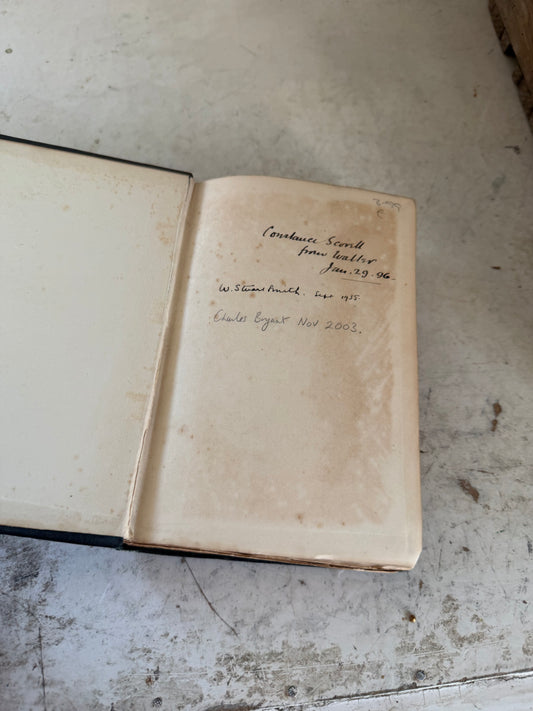 Constance Scovell
from Walter
Jan. 29. 96.
W. Stuart Smith. Sept 1935
Charles Bryant Nov 2003.